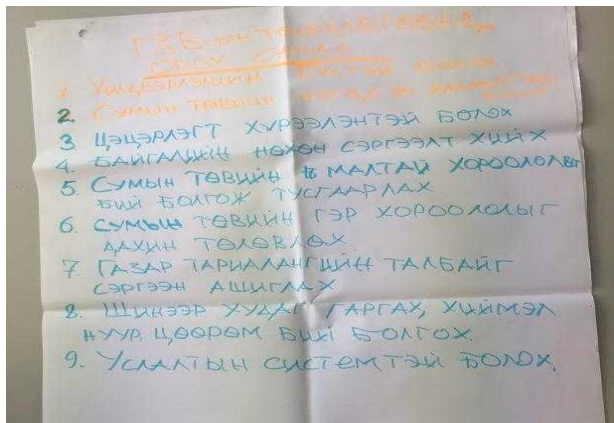 ГЗБ-ЫН ТӨЛӨВЛӨГӨӨНД
ОРОХ САНАЛ
1. ҮЙЛДВЭРЛЭЛИЙН БҮСТЭЙ БОЛОХ
2. СУМЫН ТӨВИЙН
3. ЦЭЦЭРЛЭГТ ХҮРЭЭЛЭНТЭЙ БОЛОХ
4. БАЙГАЛИЙН НӨХӨН СЭРГЭЭЛТ ХИЙХ
5. СУМЫН ТӨВИЙН МАЛТАЙ ХОРООЛОЛЫГ
БИЙ БОЛГОЖ ТУСГААРЛАХ
6. СУМЫН ТӨВИЙН ГЭР ХОРООЛОЛЫГ
ДАХИН ТӨЛӨВЛӨХ
7. ГАЗАР ТАРИАЛАНГИЙН ТАЛБАЙГ
СЭРГЭЭН АШИГЛАХ
8. ШИНЭЭР ХУДАГ ГАРГАХ, ХИЙМЭЛ
НУУР, ЦӨӨРӨМ БИЙ БОЛГОХ.
9. УСЛАЛТЫН СИСТЕМТЭЙ БОЛОХ.